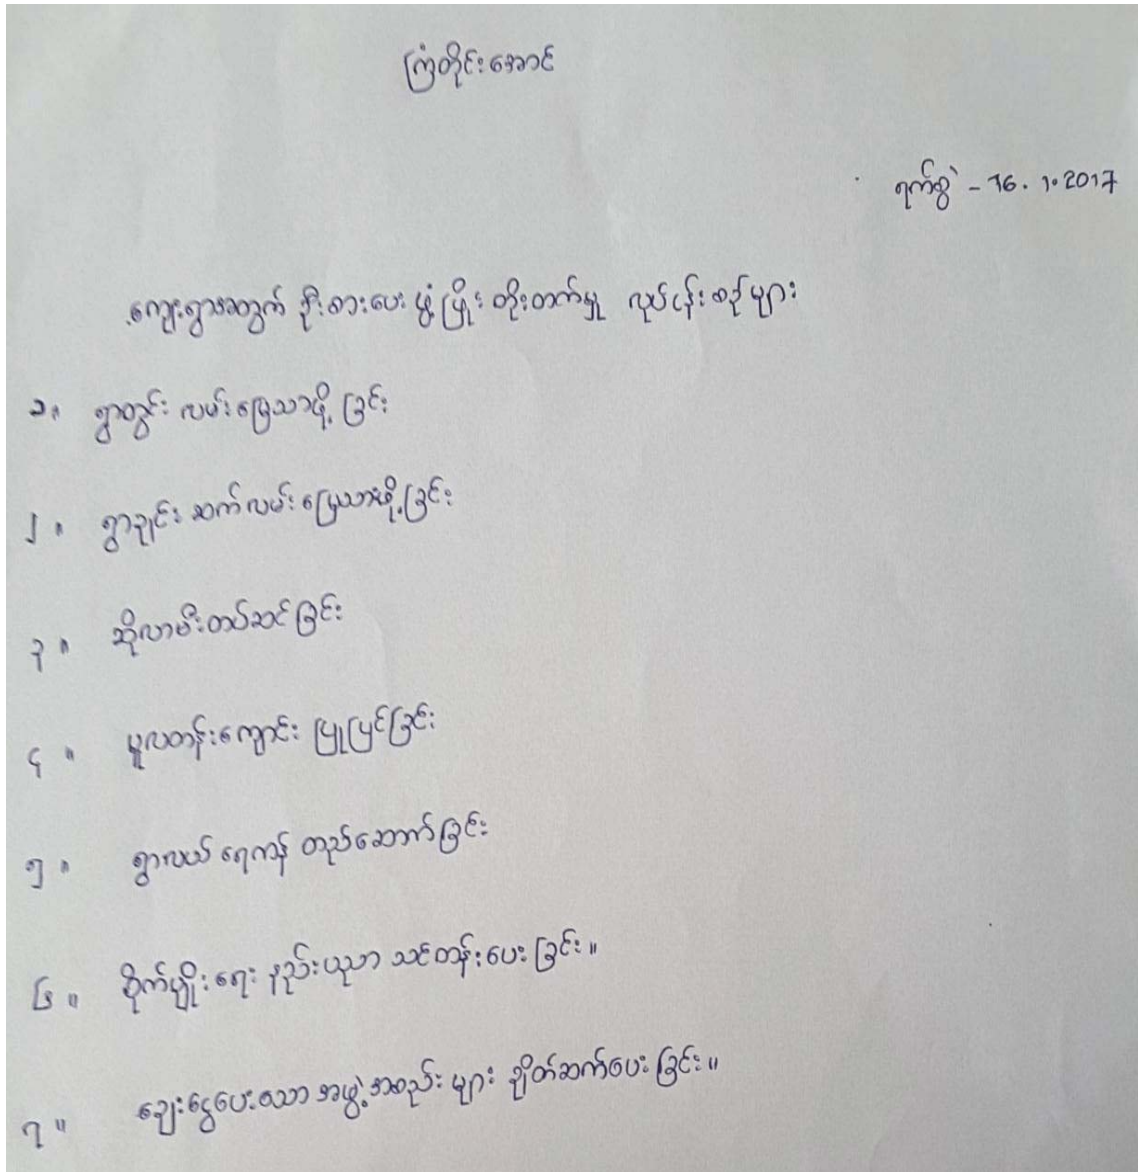 ကြံတိုင်းအောင်
ရက်စွဲ - 16.1.2017
ကျေးရွာအတွက် ဦးစားပေး ဖွံ့ဖြိုးတိုးတက်မှု လုပ်ငန်းစဉ်များ
၁။ ရွာတွင်း လမ်းမြေသားဖို့ခြင်း
၂။ ရွာချင်း ဆက်လမ်း မြေသားဖို့ခြင်း
၃။ ဆိုလာမီးတပ်ဆင်ခြင်း
၄။ မူလတန်းကျောင်း ပြုပြင်ခြင်း
၅။ ရွာလယ် ရေကန် တည်ဆောက်ခြင်း
၆။ စိုက်ပျိုးရေး နည်းပညာ သင်တန်းပေးခြင်း။
၇။ ချေးငွေပေးသော အဖွဲ့အစည်းများ ချိတ်ဆက်ပေးခြင်း။